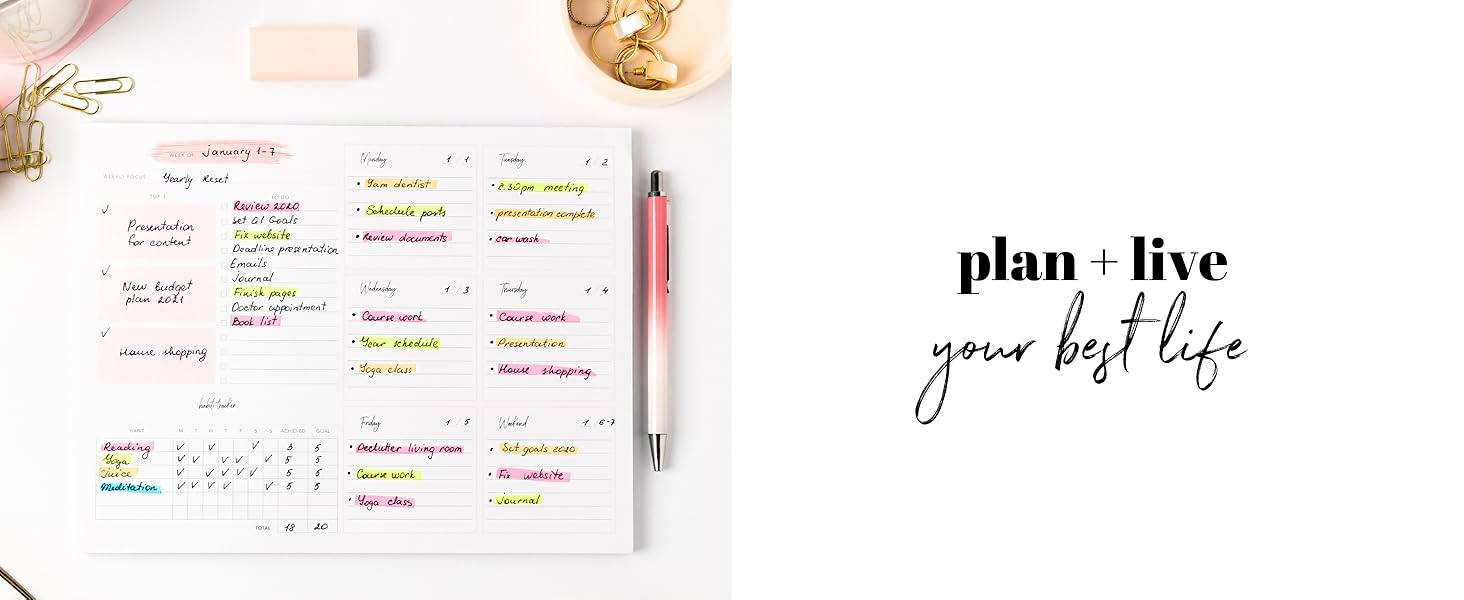 WEEK OF: January 1-7
WEEKLY FOCUS: Yearly Reset
TOP 3
✓
Presentation
for content
✓
New Budget
plan 2021
✓
House shopping
TO DO
Review 2020
Set Q1 Goals
Fix website
Deadline presentation
Emails
Journal
Finisk pages
Doctor appointment
Book list
habit tracker
HABIT M T W T F S S ACHIEVED GOAL
Reading ✓ ✓ ✓ 3 5
Yoga ✓ ✓ ✓ ✓ ✓ 5 5
Juice ✓ ✓ ✓ ✓ ✓ 5 5
Meditation ✓ ✓ ✓ ✓ ✓ 5 5
TOTAL 18 20
Monday 1 / 1
• 9am dentist
• Schedule posts
• Review documents
Tuesday 1 / 2
• 2.30pm meeting
• presentation complete
• car wash
Wednesday 1 / 3
• Course work
• Year schedule
• Yoga class
Thursday 1 / 4
• Course work
• Presentation
• House shopping
Friday 1 / 5
• Declutter living room
• Course work
• Yoga class
Weekend 1 / 6-7
• Set goals 2020
• Fix website
• Journal
plan + live
your best life